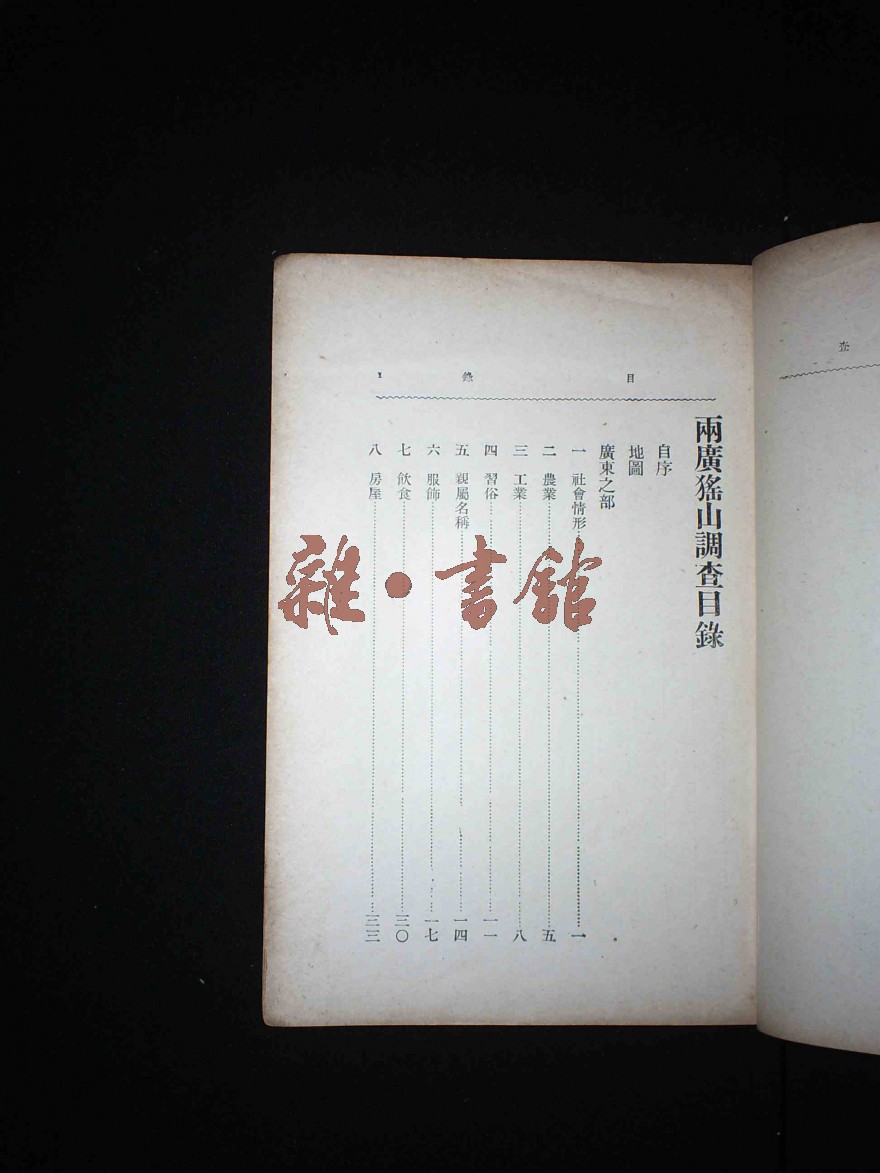 查
目錄 1
兩廣猺山調查目錄
自序
地圖
廣東之部
一 社會情形 一
二 農業 五
三 工業 八
四 習俗 一一
五 親屬名稱 一四
六 服飾 一七
七 飲食 三〇
八 房屋 三三
雜·書館